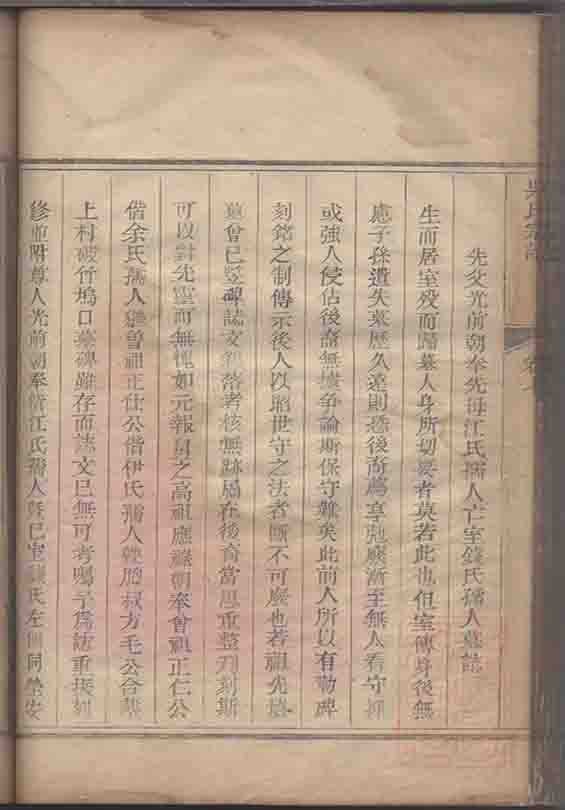 吳氏宗譜
卷
先父光前朝奉先母江氏孺人亡室錢氏孺人墓誌
生而居室歿而歸墓人身所切要者莫若此也但室傳身後無
慮子孫遺失墓歷久遠則恐後裔薦享弛廢漸至無人看守抑
或強人侵佔後裔無據爭論斯保守難矣此前人所以有勒碑
刻銘之制傳示後人以昭世守之法者斷不可廢也若祖先塋
墓曾已豎碑誌文剝落者核無跡屆在後裔當思重整刊刻斯
可以對先靈而無愧如元報身之高祖應祿朝奉曾祖正仁公
偕余氏孺人曾祖正仕公偕伊氏孺人胞叔方毛公合葬
上村破竹塢口墓碑雖存而誌文已無可考囑予為訪重刻
修並附尊人光前朝奉偕江氏孺人暨已室錢氏左側同塋安